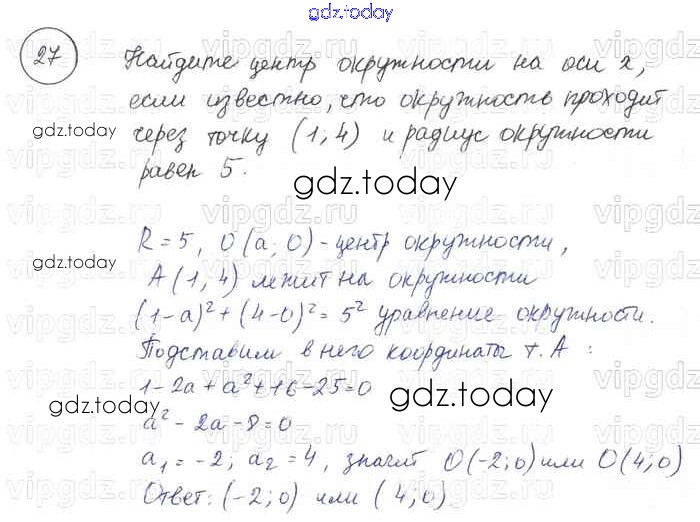 gdz.today
27 Найдите центр окружности на оси x,
если известно, что окружность проходит
gdz.today
через точку (1,4) и радиус окружности
равен 5.
gdz.today
R = 5, O(a; O) - центр окружности,
A(1,4) лежит на окружности
gdz.today
(1-a)² + (4-0)² = 5² уравнение окружности.
Подставим в него координаты т. А :
1-2a+a²+16-25=0
gdz.today
gdz.today
a² - 2a - 8 = 0
a₁ = -2; a₂ = 4, значит O(-2;0) или O(4;0)
Ответ: (-2;0) или (4;0).
gdz.today